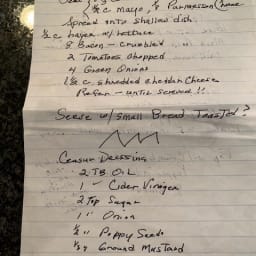 { ½ c mayo, ½ Parmesan Cheese
Spread onto shallow dish.
layer w/ lettuce
8 Bacon - crumbled
2 Tomatoes chopped
4 Green Onions
1½ c shredded cheddar cheese
Refer - until serve !!
Serve w/ small Bread Toasted?
Dressing
2 TB Oil
1 " Cider Vinegar
2 Tsp Sugar
1 " Onion
½ " Poppy Seeds
" Ground Mustard